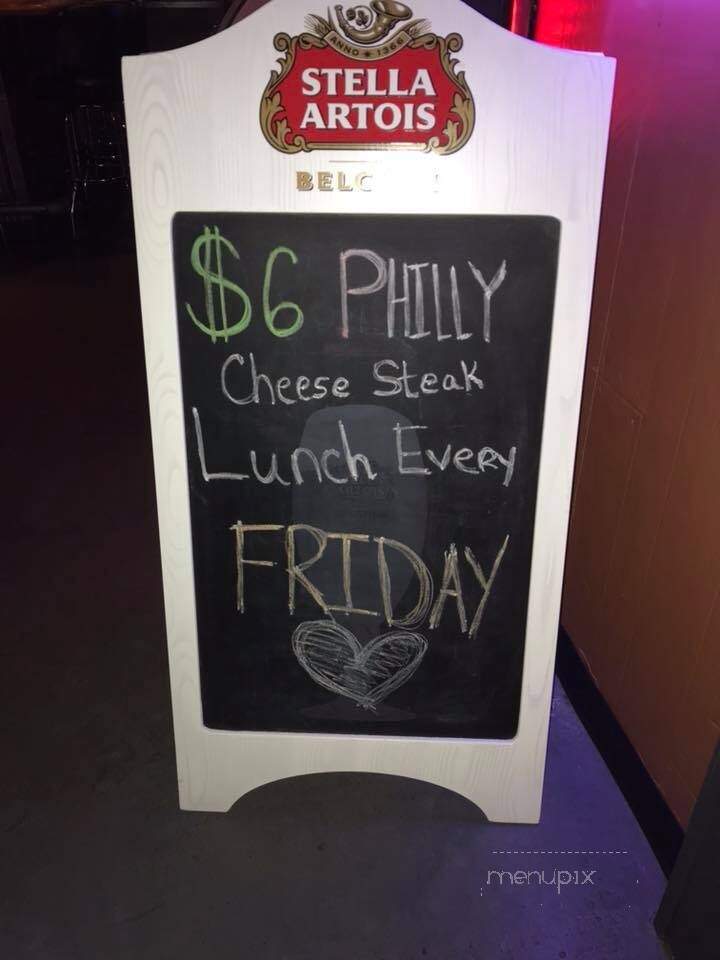 ANNO 1366
STELLA
ARTOIS
$6 PHILLY
Cheese Steak
Lunch Every
FRIDAY
menupix